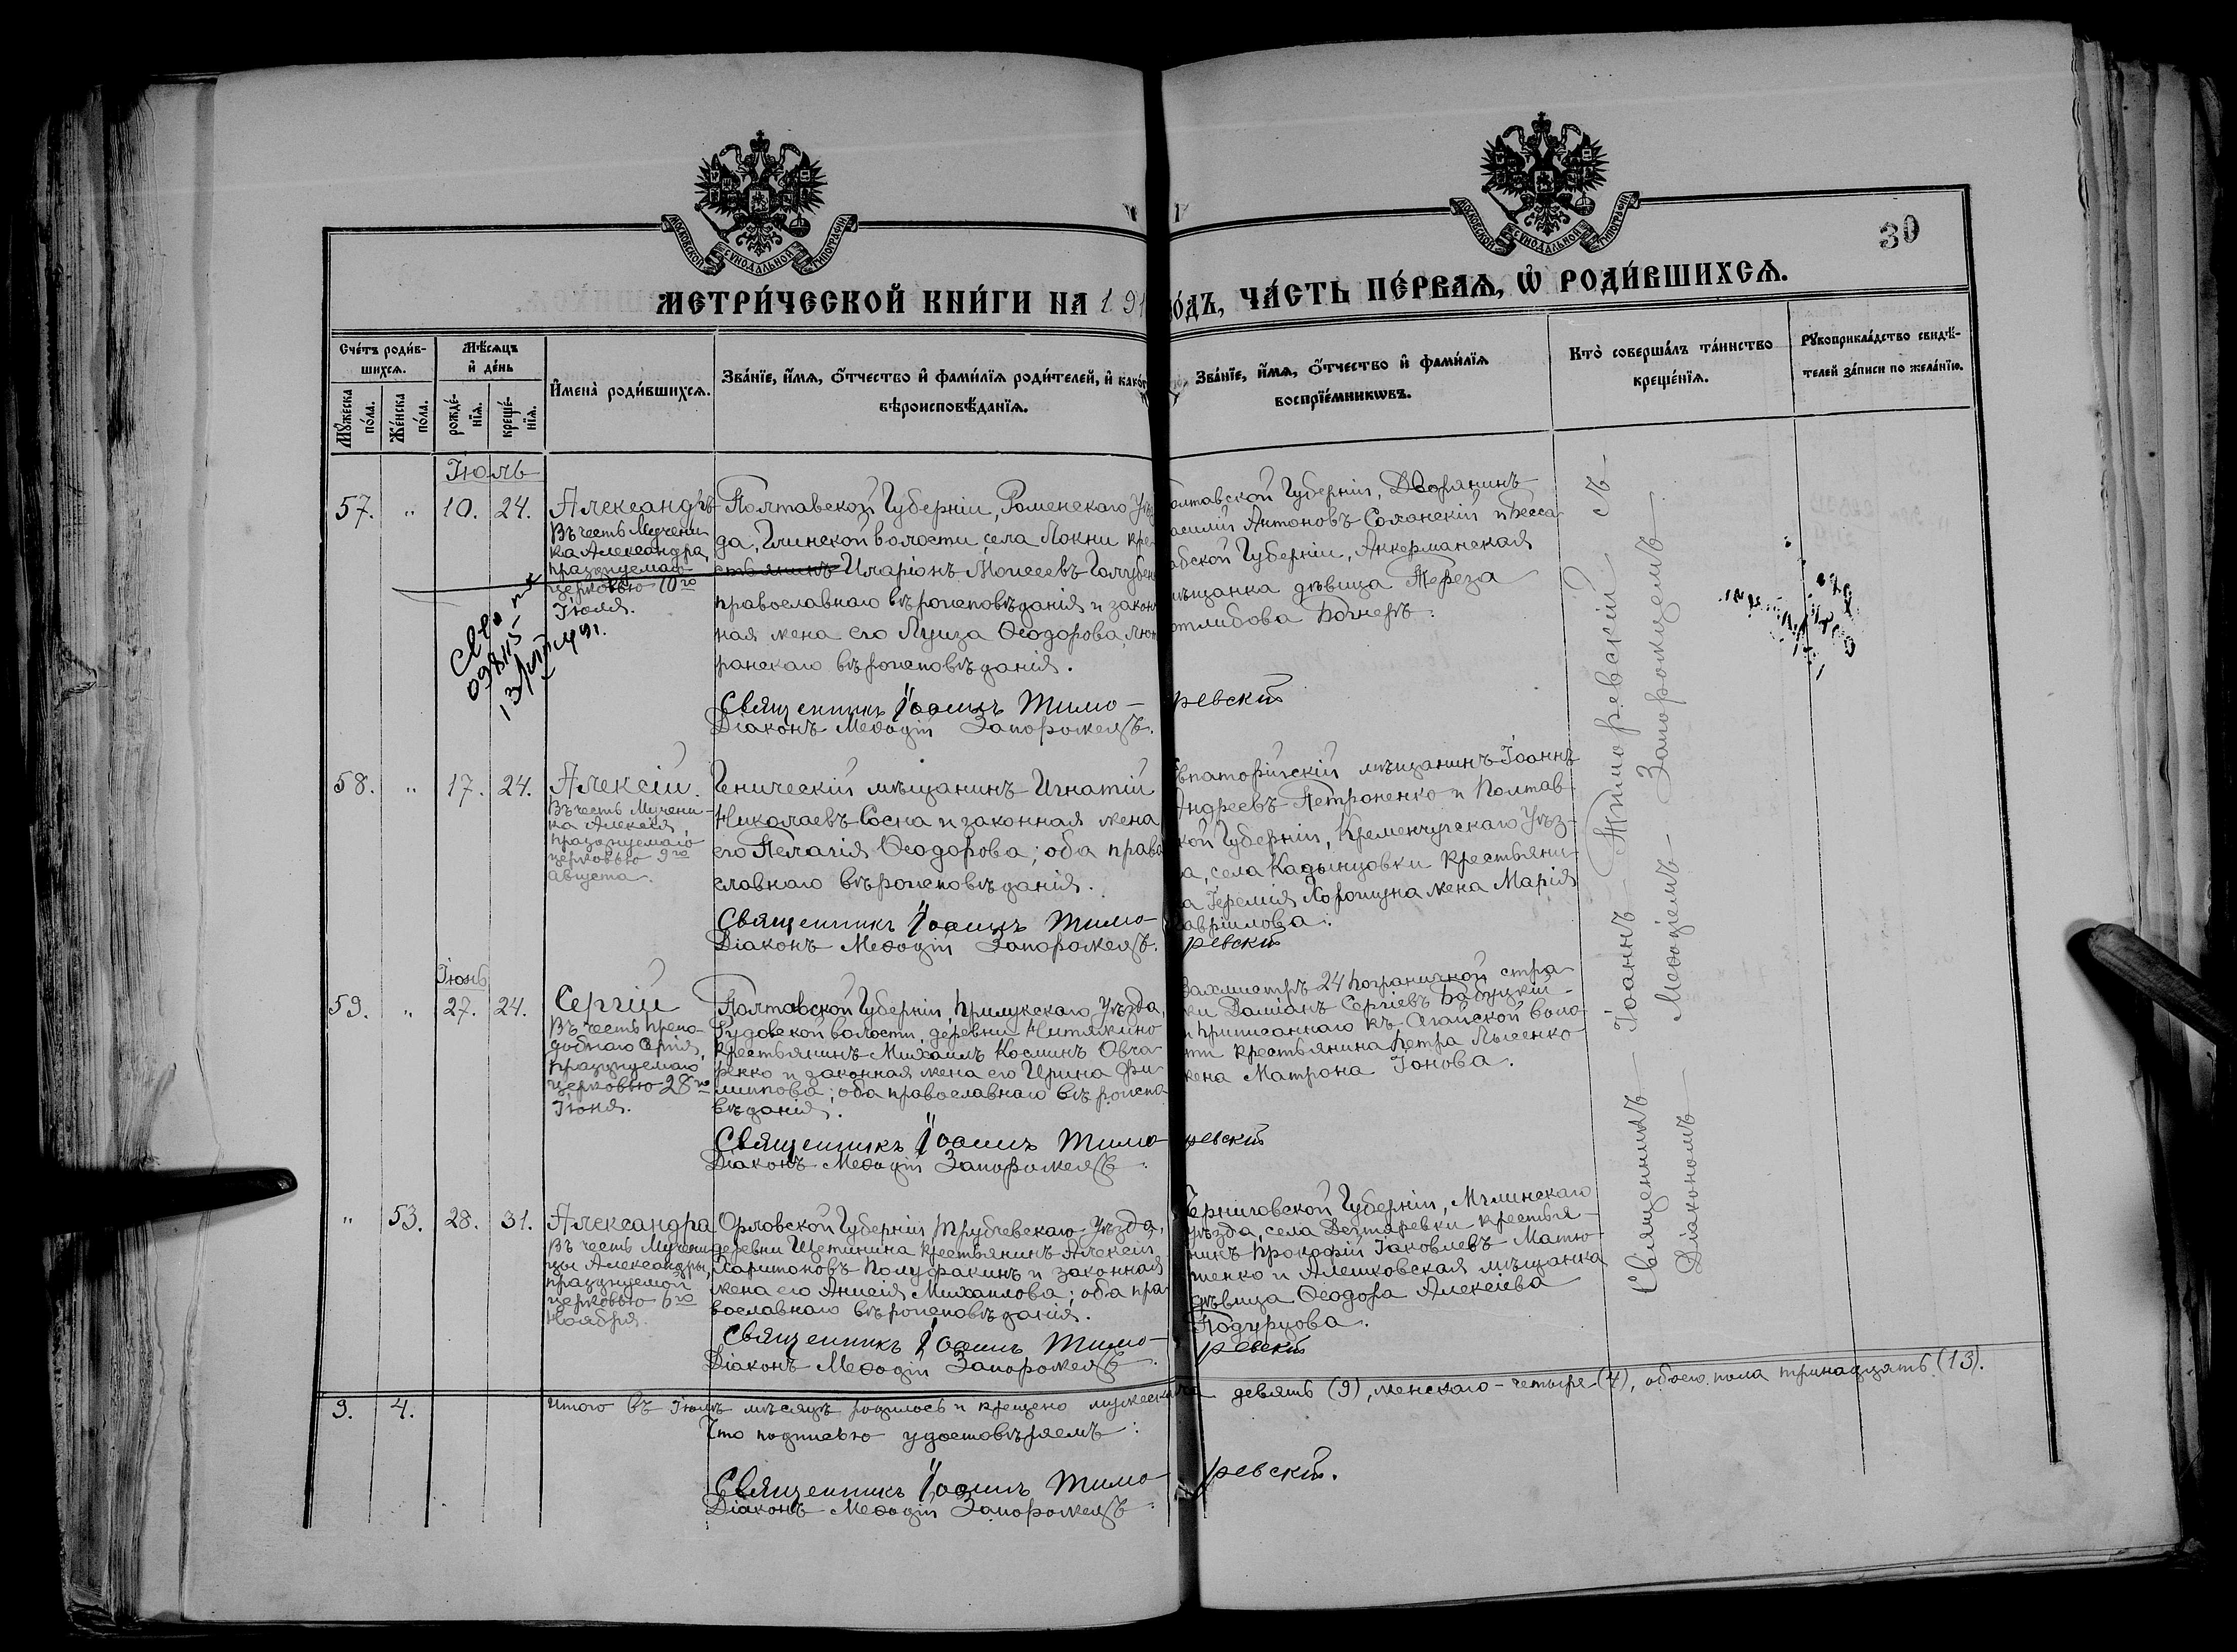 МОСКОВСКОЙ СУНОДАЛЬНОЙ ТИПОГРАФІИ
МОСКОВСКОЙ СУНОДАЛЬНОЙ ТИПОГРАФІИ
30
МЕТРИ́ЧЕСКОЙ КНИ́ГИ НА 191
О́ДЪ, ЧА́СТЬ ПЕ́РВАѦ, Ѿ РОДИ́ВШИХСѦ.
Сче́тъ роди́в-
шихсѧ.
Мꙋ́жеска по́ла.
Же́нска по́ла.
Мѣ́сѧцъ
и҆ де́нь
рожде́-
нїѧ.
креще́-
нїѧ.
И҆мена̀ роди́вшихсѧ.
Зва́нїе, и҆́мѧ, ѻ҆́тчество и҆ фами́лїѧ роди́телей, и҆ како́г
вѣроисповѣ́данїѧ.
Зва́нїе, и҆́мѧ, ѻ҆́тчество и҆ фами́лїѧ
воспрїе́мникѡвъ.
Кто̀ соверша́лъ та́инство
креще́нїѧ.
Рꙋкоприкла́дство свидѣ́-
телей за́писи по жела́нїю.
Іюль
57. " 10. 24.
Александръ
Въ честь Мучени-
ка Александра,
празднуемаго
церковью 10го
Іюля.
Полтавской Губерніи, Роменскаго Уѣз
да, Глинской волости, села Локни кре-
стьянинъ Иларіонъ Моисеевъ Голубен
православнаго вѣроисповѣданія и закон
ная жена его Луиза Ѳеодорова, лют
ранскаго вѣроисповѣданія.
Священникъ Іоаннъ Тимо-
Діаконъ Меѳодій Запорожецъ.
олтавской Губерніи, Дворянинъ
асилій Антоновъ Солонскій и Бесса-
абской Губерніи, Аккерманская
мѣщанка дѣвица Тереза
отлибова Богнеръ.
ревскій
58. " 17. 24.
Алексій.
Въ честь Мучени-
ка Алексія,
празднуемаго
церковью 9го
Августа.
Геническій мѣщанинъ Игнатій
Николаевъ Сосна и законная жена
его Пелагія Ѳеодорова; оба право
славнаго вѣроисповѣданія.
Священникъ Іоаннъ Тимо-
Діаконъ Меѳодій Запорожецъ.
впаторійскій мѣщанинъ Іоаннъ
Андреевъ Петроненко и Полтав-
кой Губерніи, Кременчугскаго Уѣз-
а, села Кадынцовки крестьяни-
а Іеремія Хорошуна жена Марія
авріилова.
ревскій
Іюнь
59. " 27. 24.
Сергій
Въ честь препо-
добнаго Сергія,
празднуемаго
церковью 28го
Іюня.
Полтавской Губерніи, Прилукскаго Уѣзда,
волости, деревни
крестьянинъ Михаилъ Косминъ Овча-
ренко и законная жена его Ирина Фи-
липпова; оба православнаго вѣроиспо-
вѣданія.
Священникъ Іоаннъ Тимо-
Діаконъ Меѳодій Запорожецъ.
Вахмистръ 24 пограничной стра-
жи Даміанъ Сергіевъ Бабуцкій
и приписаннаго къ Агайской воло-
сти крестьянина Петра Лысенко
жена Матрона Іонова.
ревскій
" 53. 28. 31.
Александра
Въ честь Мучени-
цы Александры,
празднуемой
церковью 6го
Ноября.
Орловской Губерніи Трубчевскаго Уѣзда,
деревни Щетинина крестьянинъ Алексій
Харитоновъ Полуфакинъ и законная
жена его Анисія Михаилова; оба пра-
вославнаго вѣроисповѣданія.
Священникъ Іоаннъ Тимо-
Діаконъ Меѳодій Запорожецъ.
Черниговской Губерніи, Мглинскаго
уѣзда, села Дегтяревки крестья-
нинъ Прокофій Іаковлевъ Матю-
шенко и Алешковская мѣщанка
дѣвица Ѳеодора Алексіева
Подурцова.
ревскій
Священникъ Іоаннъ Тиморевскій съ
Діакономъ Меѳодіемъ Запорожцемъ
9. 4.
Итого въ Іюлѣ мѣсяцѣ родилось и крещено мужескаго девять (9), женскаго - четыре (4), обоего пола тринадцать (13).
Что подписью удостовѣряемъ:
Священникъ Іоаннъ Тимо-
ревскій.
Діаконъ Меѳодій Запорожецъ.